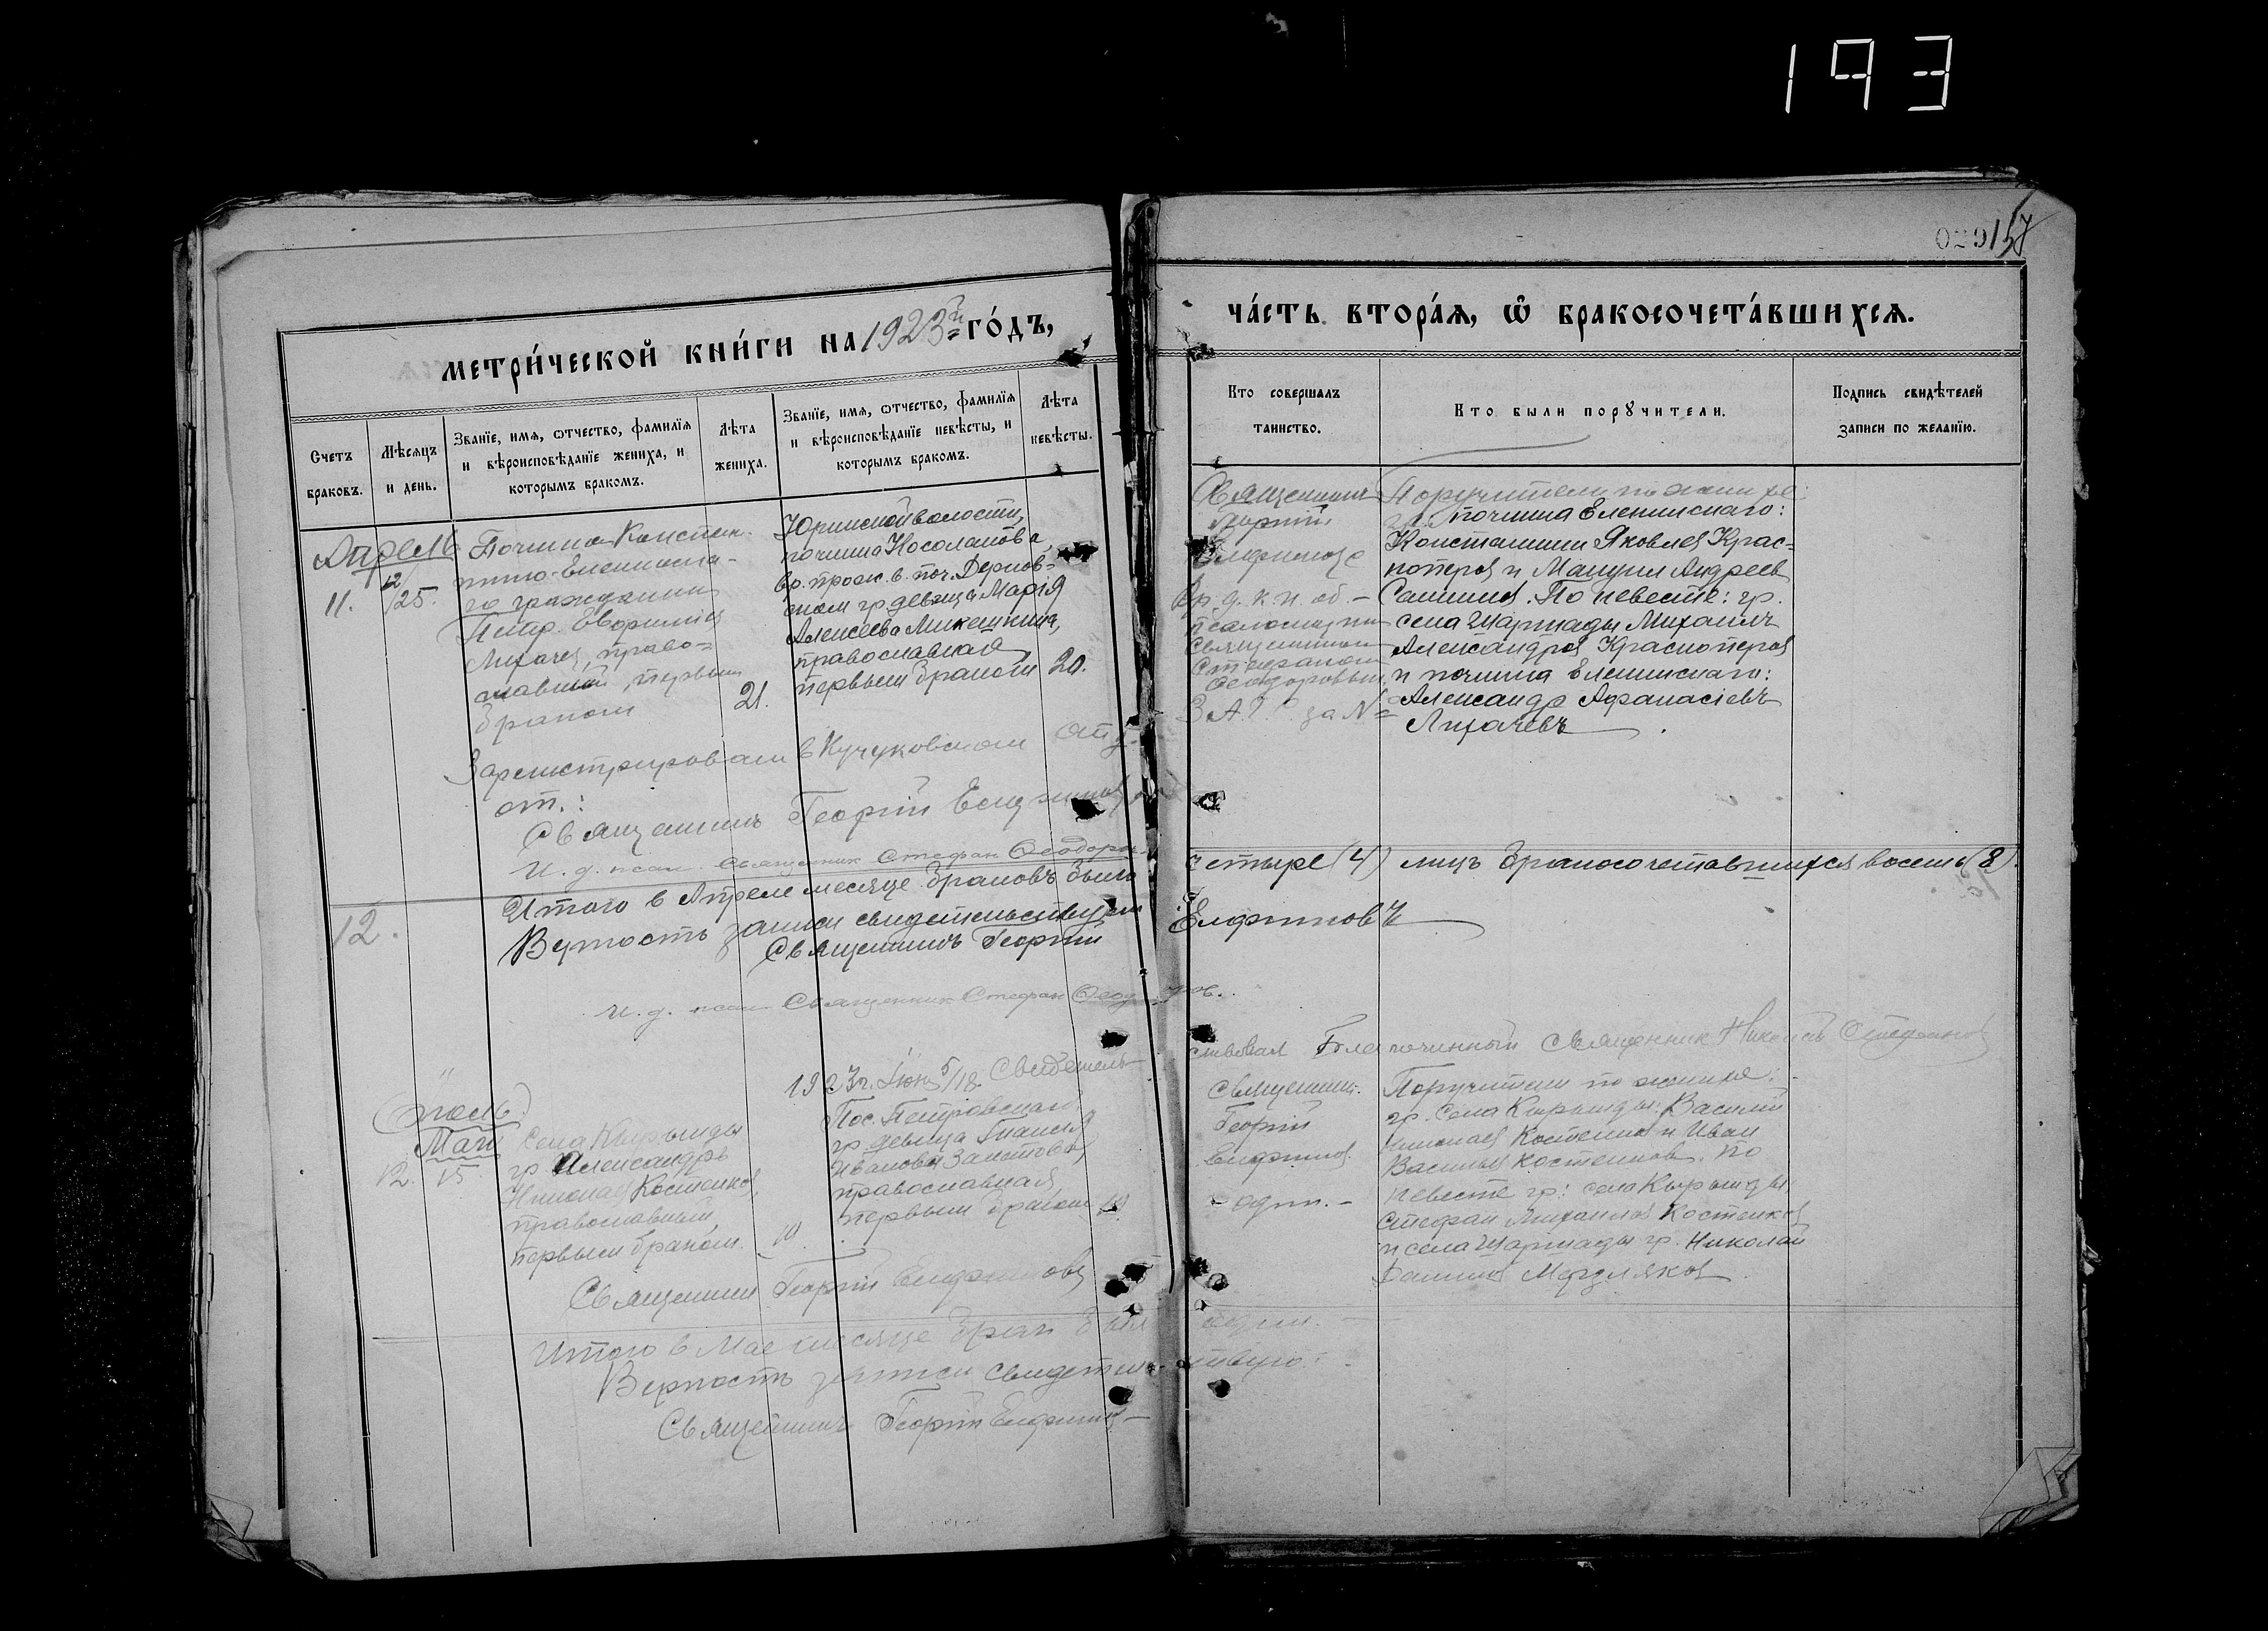 193
029 157
метри́ческой кни́ги на 1923й го́дъ,
ча́сть втора́я, ѡ҆ бракосочета́вшихся.
Счетъ браковъ.
Мѣсяцъ и день.
Званїе, имя, ѿчество, фамилїя и вѣроисповѣданїе жениха, и которымъ бракомъ.
Лѣта жениха.
Званїе, имя, ѿчество, фамилїя и вѣроисповѣданїе невѣсты, и которымъ бракомъ.
Лѣта невѣсты.
Кто совершалъ таинство.
Кто были порꙋчители.
Подпись свидѣтелей записи по желанїю.
Апрель
11.
12/25.
Починка Констан-
тино-Еленинска-
го гражданин
Петр
Лихачев, право-
славный, первым
браком
21.
Юринской волости,
починка Косолапова
вр. прож. в поч.
гр. девица Марія
Алексеева Микешкина,
православная
первым браком
20.
Священник
Георгий
Елфимов
Вр. д. к. и. об. -
псаломщик
Священником
Стефаном
Феодоровым
З.А.Г.С. за №
Поручители по женихе:
гр. починка Еленинскаго:
Константин Яковлев Крас-
ноперов и Андреев
По невесте: гр.
села Шаршады Михаилъ
Александров Красноперов
и починка Еленинскаго:
Александр Афанасіевъ
Лихачевъ
в Кучуковском
от.:
Священникъ Георгий Елфимов
И. д. псал. Священник Стефан Феодоров
Итого в Апреле месяце браковъ было
четыре (4) лицъ бракосочетавшихся восемь (8).
12.
Верность записи свидетельствуем
Священникъ Георгий
Елфимовъ
И. д. псал. Священник Стефан Феодоров.
1923 г. Июня 5/18. Свидетель-
ствовал Благочинный Священник Николай Стефанов
Май
12.
15.
Села Кырынды
гр. Александръ
Николаев Костенков,
православный,
первым браком.
19.
Пос. Петровскаго
гр. девица
Иванова
православная
первым браком
19.
Священник.
Георгий
Елфимов.
- один. -
Поручители по женихе:
гр. села Кырынды: Василий
Николаев Костенков и Иван
Васильев Костенков. По
невесте гр: села Кырынды,
Стефан Михаилов Костенков
и села Шаршады гр. Николай
Мерзляков
Священник Георгий Елфимовъ
Итого в Мае месяце брак был один. -
Верность записи свидетельствую:
Священникъ Георгий Елфимов -